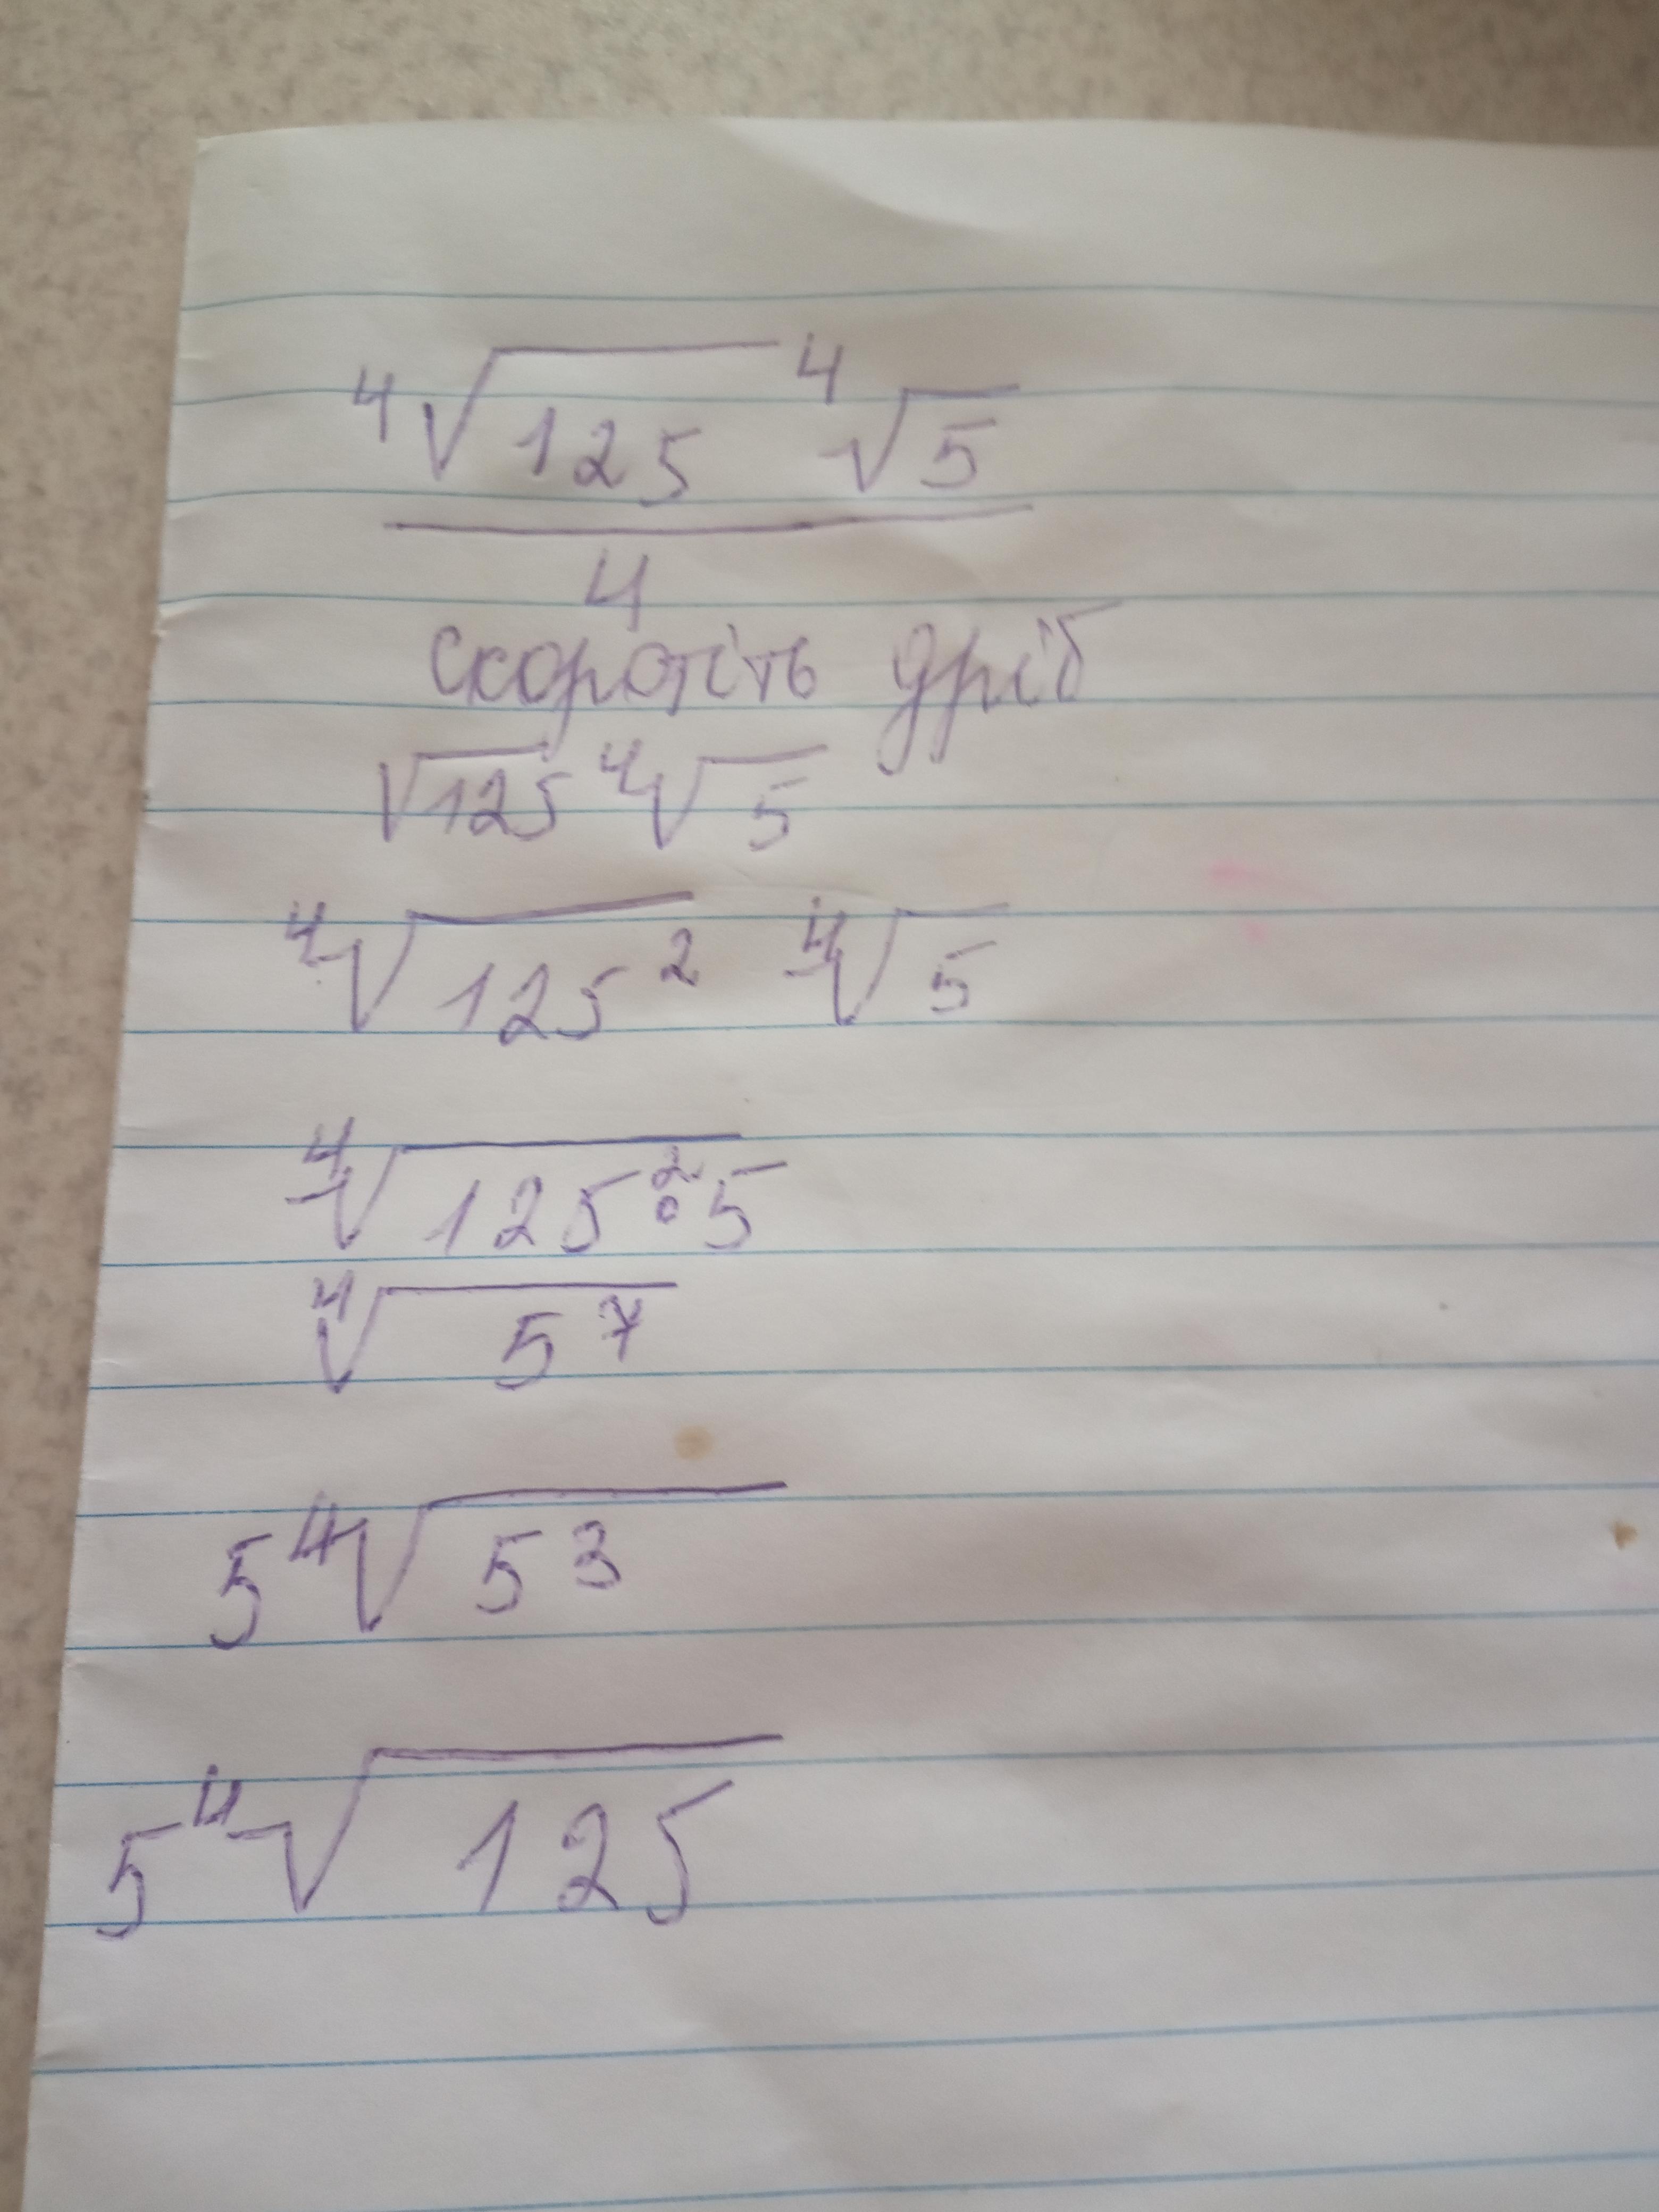 ⁴√125 ⁴√5
4
скоротіть дріб
√125 ⁴√5
⁴√125² ⁴√5
⁴√125²∘5
⁴√5⁷
5⁴√5³
5⁴√125